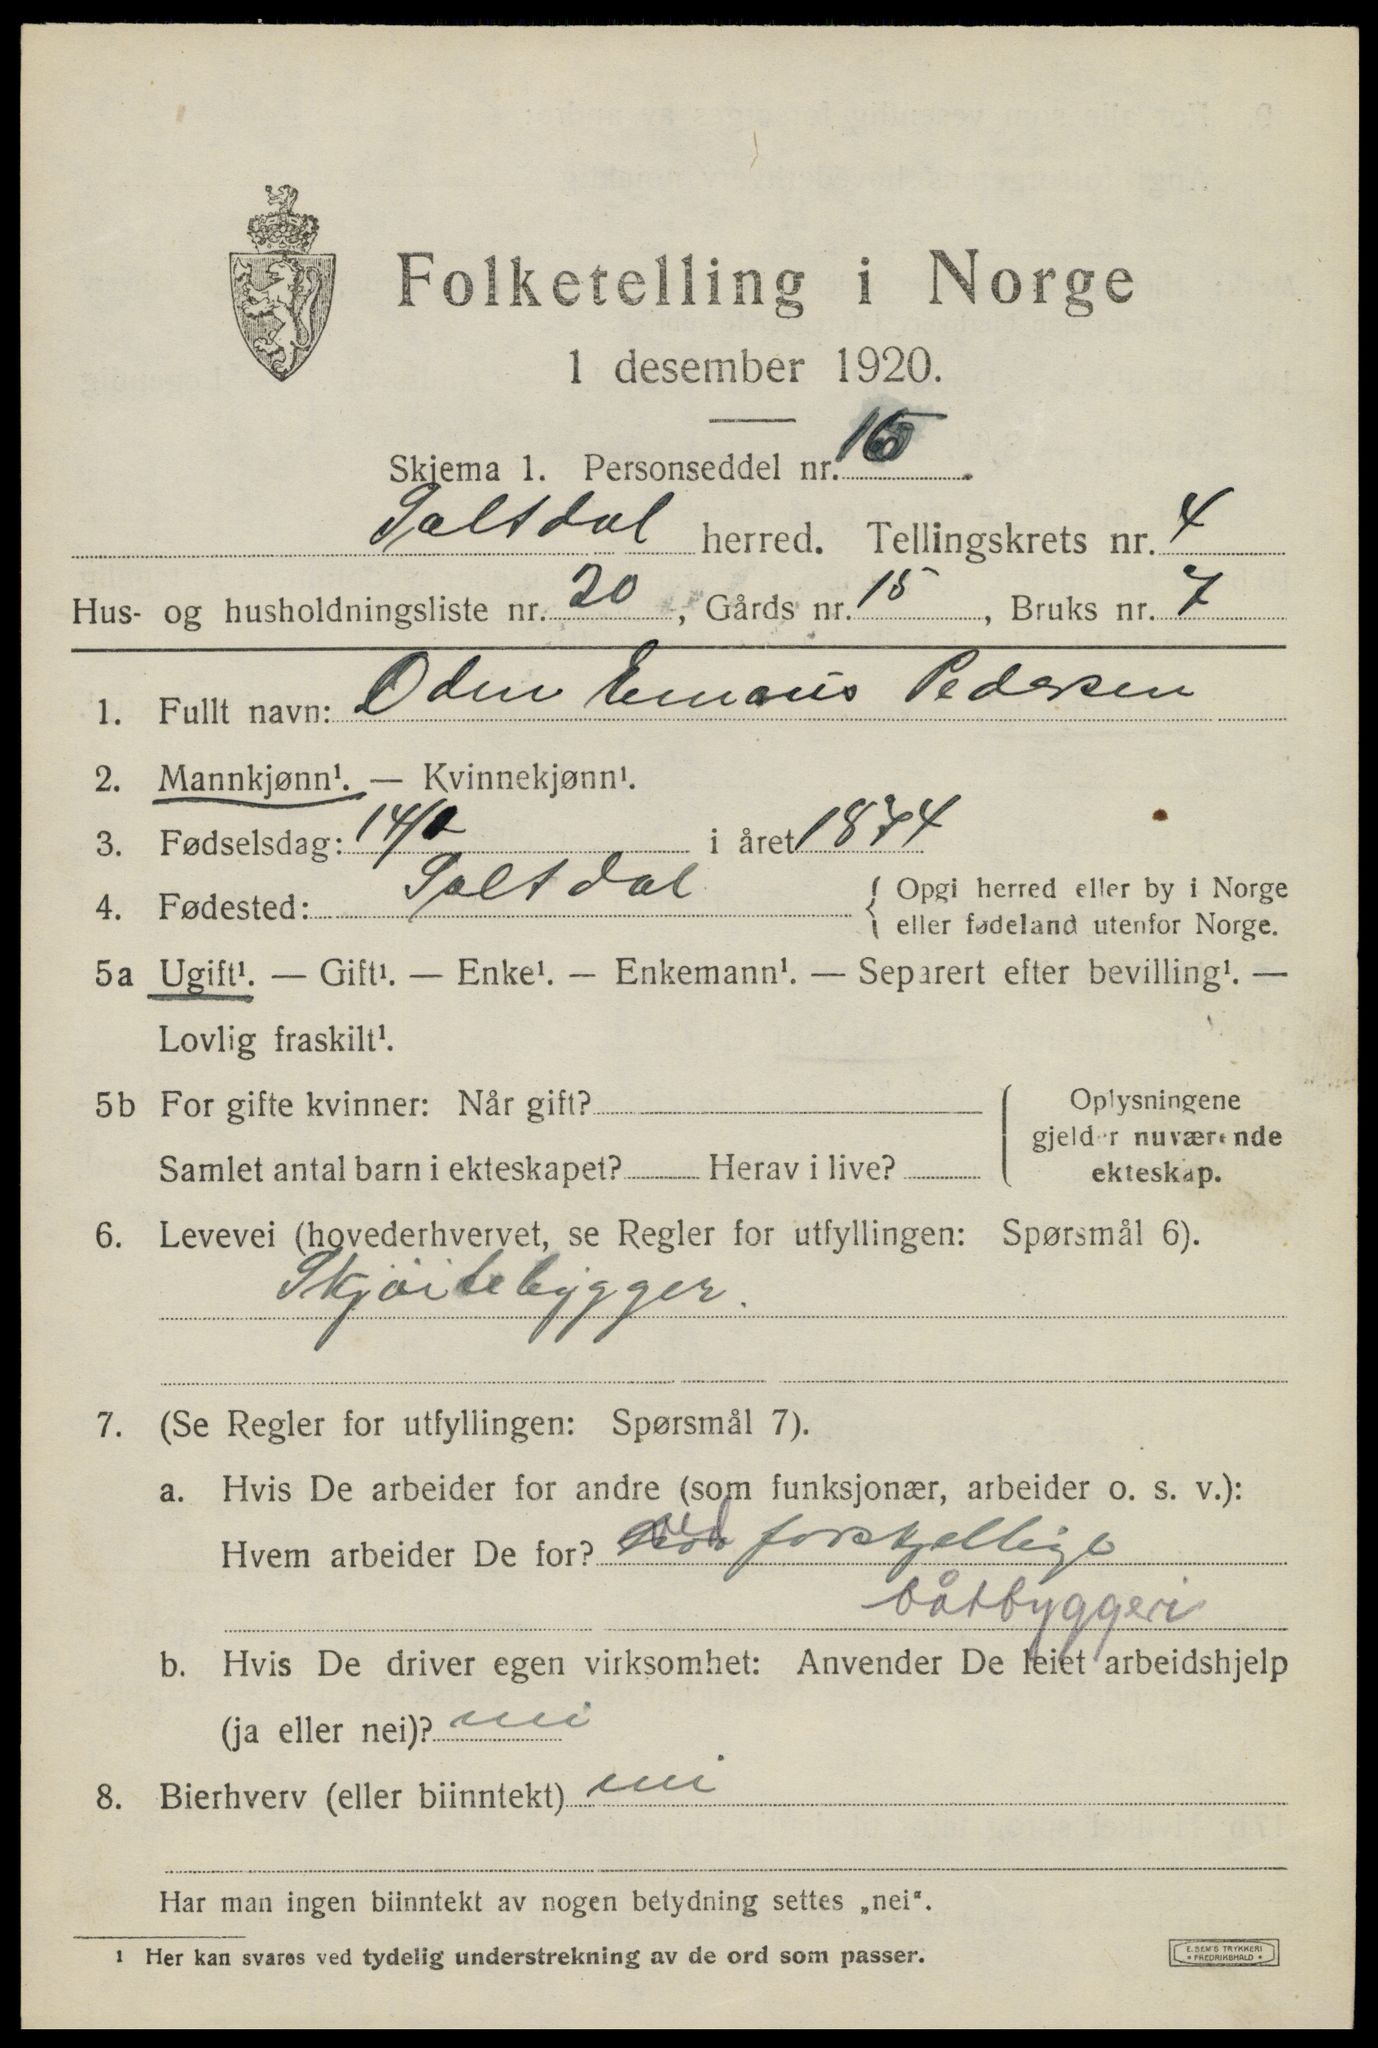 Folketelling i Norge
1 desember 1920.
Skjema 1. Personseddel nr. 16.
Saltdal herred. Tellingskrets nr. 4
Hus- og husholdningsliste nr. 20, Gårds nr. 15, Bruks nr. 7
1. Fullt navn: Odin Pedersen
2. Mannkjønn¹. — Kvinnekjønn¹.
3. Fødselsdag: 14/2 i året 1874
4. Fødested: Saltdal { Opgi herred eller by i Norge
eller fødeland utenfor Norge.
5a Ugift¹. — Gift¹. — Enke¹. — Enkemann¹. — Separert efter bevilling¹. —
Lovlig fraskilt¹.
5b For gifte kvinner: Når gift? { Oplysningene
gjelder nuværende
Samlet antal barn i ekteskapet? Herav i live? ekteskap.
6. Levevei (hovederhvervet, se Regler for utfyllingen: Spørsmål 6).
Skjøitebygger.
7. (Se Regler for utfyllingen: Spørsmål 7).
a. Hvis De arbeider for andre (som funksjonær, arbeider o. s. v.):
Hvem arbeider De for? ved forskjellige
båtbyggeri
b. Hvis De driver egen virksomhet: Anvender De leiet arbeidshjelp
(ja eller nei)? nei
8. Bierhverv (eller biinntekt) nei
Har man ingen biinntekt av nogen betydning settes „nei“.
¹ Her kan svares ved tydelig understrekning av de ord som passer.
E. SEM'S TRYKKERI
* FREDRIKSHALD *